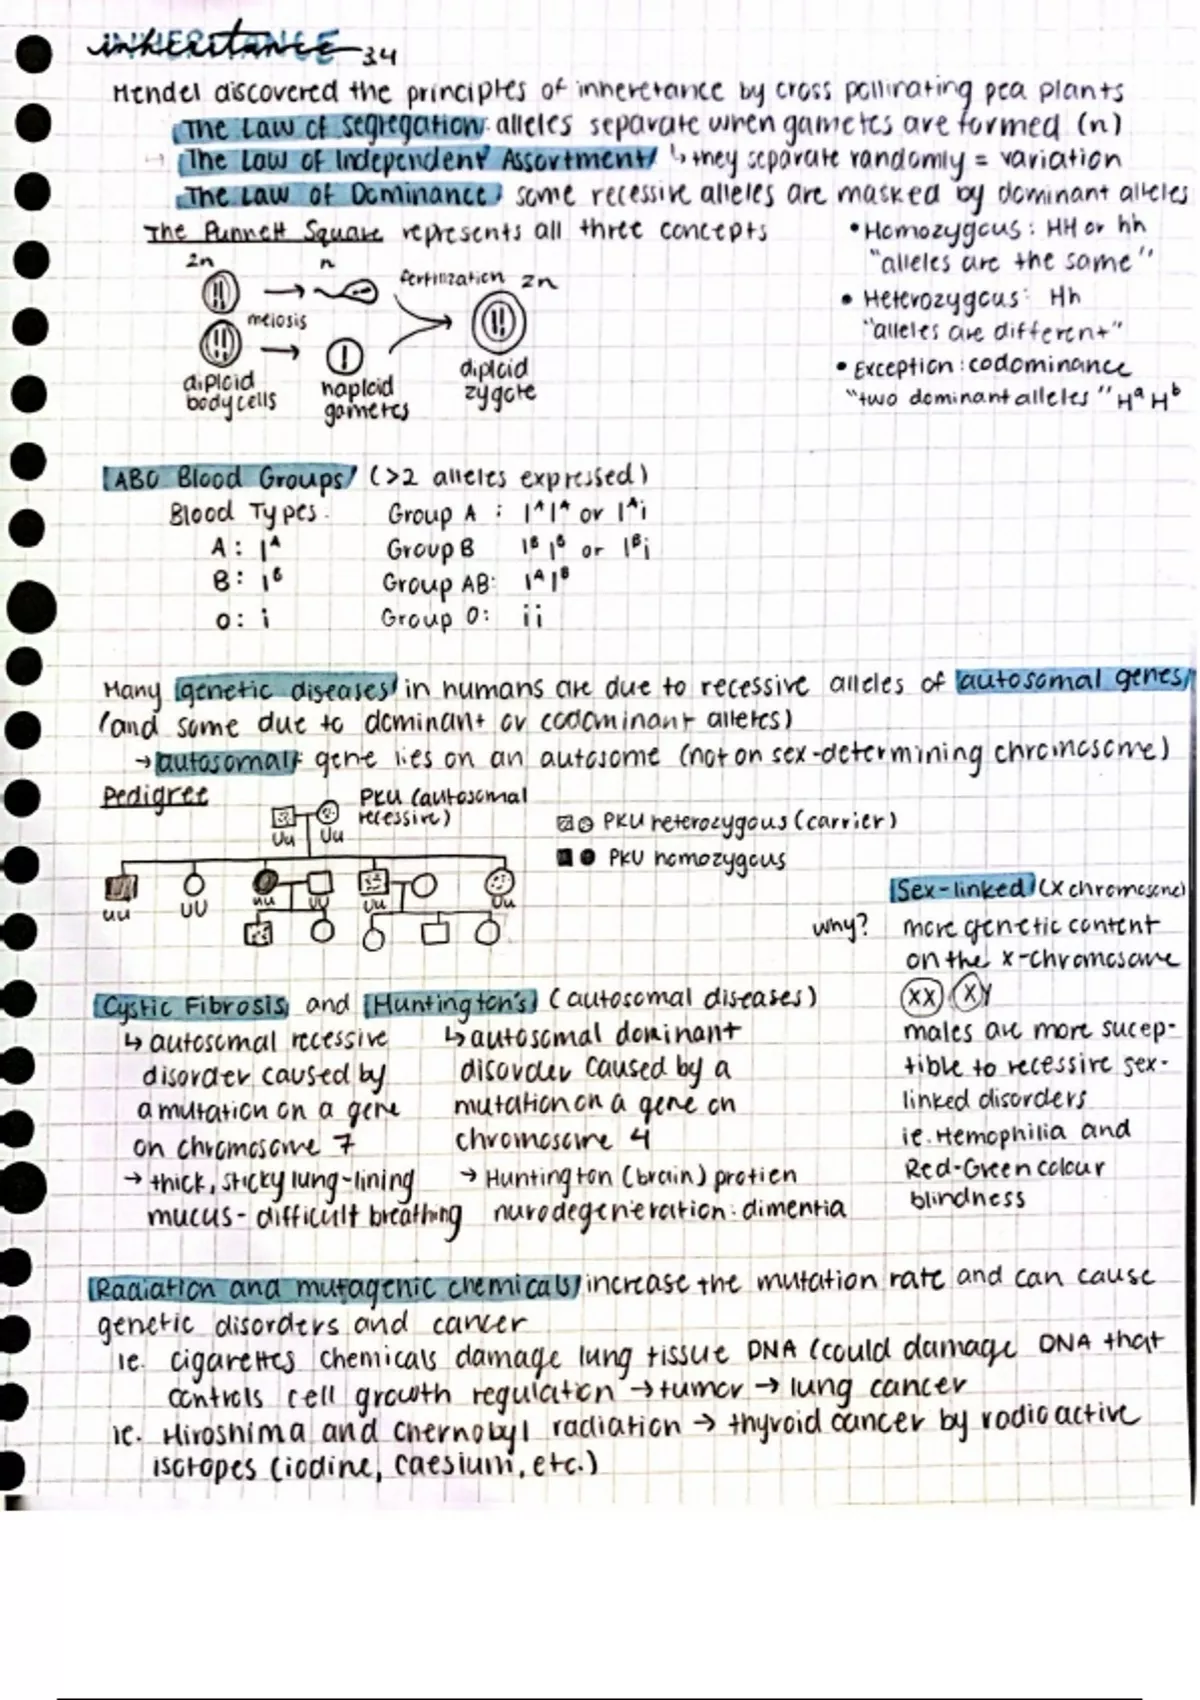 inheritance 3.4
INHERITANCE
Mendel discovered the principles of inheretance by cross pollinating pea plants
The Law of Segregation: alleles separate when gametes are formed (n)
→ The Law of Independent Assortment ↳ they separate randomly = variation
The Law of Dominance: some recessive alleles are masked by dominant alleles
The Punnett Square represents all three concepts
• Homozygous: HH or hh
"alleles are the same"
• Heterozygous: Hh
"alleles are different"
• Exception: codominance
"two dominant alleles" Hᵃ Hᵇ
2n n fertilization 2n
meiosis
diploid body cells
haploid gametes
diploid zygote
ABO Blood Groups (>2 alleles expressed)
Blood Types: Group A : Iᴬ Iᴬ or Iᴬi
A: Iᴬ Group B Iᴮ Iᴮ or Iᴮi
B: Iᴮ Group AB: Iᴬ Iᴮ
O: i Group O: ii
Many genetic diseases in humans are due to recessive alleles of autosomal genes
(and some due to dominant or codominant alleles)
→ autosomal: gene lies on an autosome (not on sex-determining chromosome)
Pedigree
PKU (autosomal
recessive)
Uu Uu
PKU heterozygous (carrier)
PKU homozygous
uu UU uu UU Uu Uu
Sex-linked (X chromosome)
why? more genetic content
on the x-chromosome
XX XY
males are more sucep-
tible to recessive sex-
linked disorders
ie. Hemophilia and
Red-Green colour
blindness
Cystic Fibrosis and Huntington's (autosomal diseases)
↳ autosomal recessive
disorder caused by
a mutation on a gene
on chromosome 7
→ thick, sticky lung-lining
mucus - difficult breathing
↳ autosomal dominant
disorder caused by a
mutation on a gene on
chromosome 4
→ Huntington (brain) protien
nurodegeneration: dimentia
Radiation and mutagenic chemicals increase the mutation rate and can cause
genetic disorders and cancer
ie. cigarettes chemicals damage lung tissue DNA (could damage DNA that
controls cell growth regulation → tumor → lung cancer
ie. Hiroshima and Chernobyl radiation → thyroid cancer by radioactive
isotopes (iodine, caesium, etc.)